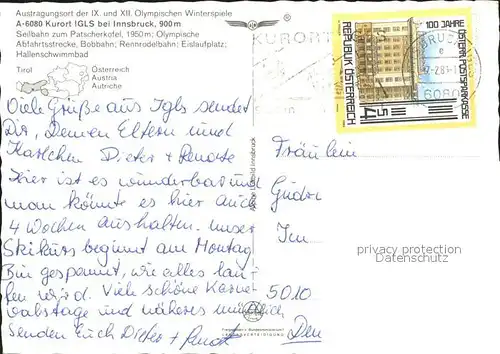 Austragungsort der IX. und XII. Olympischen Winterspiele
A-6080 Kurort IGLS bei Innsbruck, 900m
Seilbahn zum Patscherkofel, 1950m; Olympische
Abfahrtsstrecke, Bobbahn; Rennrodelbahn; Eislaufplatz;
Hallenschwimmbad
Tirol
Österreich
Austria
Autriche
Viele Grüße aus Igls sendet
Dir, Deinen Eltern und
Karlchen Dieter + Renate
Hier ist es wunderbar und
man könnte es hier auch
4 Wochen aushalten. Unser
Skikurs beginnt am Montag
Bin gespannt, wie alles lau-
fen wird. Viele schöne Karne-
valstage und näheres mündlich
Senden Euch Dieter + Renate
KURORT
100 JAHRE
ÖSTERR. POSTSPARKASSE
REPUBLIK ÖSTERREICH
S 4
6080
Fräulein
Gudr
Im
5010
privacy protection
Datenschutz